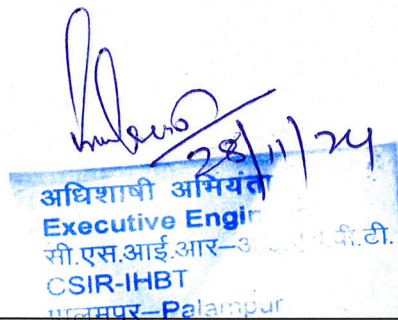 28/11/24
अधिशाषी अभियंता
Executive Engin
सी.एस.आई.आर–आ .बी.टी.
CSIR-IHBT
पालमपुर–Palampur